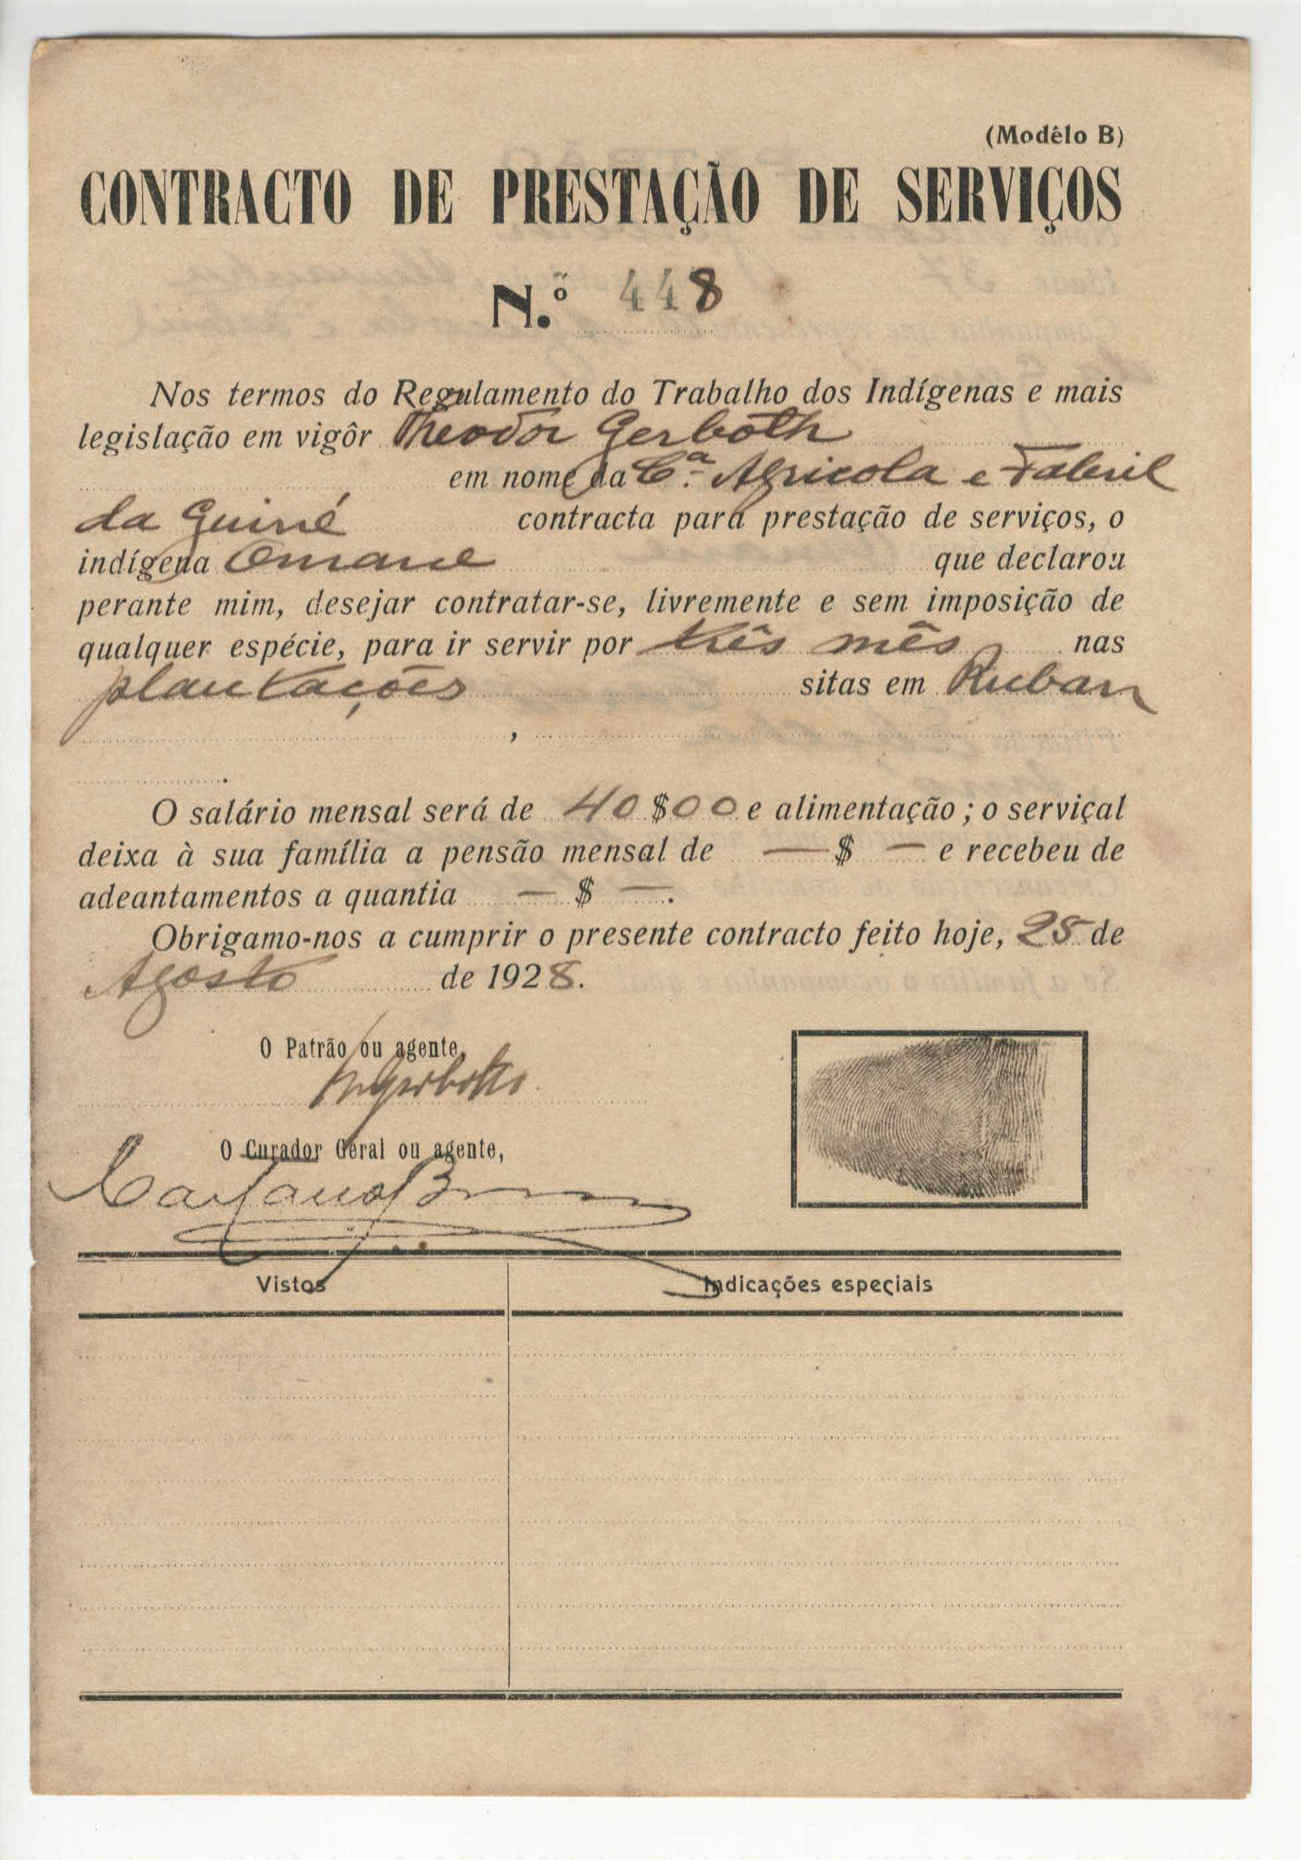 (Modêlo B)
CONTRACTO DE PRESTAÇÃO DE SERVIÇOS
N.º 448
Nos termos do Regulamento do Trabalho dos Indígenas e mais
legislação em vigôr Theodor Gerboth
em nome da C.ª Agricola e Fabril
da Guiné contracta para prestação de serviços, o
indígena que declarou
perante mim, desejar contratar-se, livremente e sem imposição de
qualquer espécie, para ir servir por três mês nas
plantações sitas em Ruban
,
.
O salário mensal será de 40$00 e alimentação; o serviçal
deixa à sua família a pensão mensal de —$— e recebeu de
adeantamentos a quantia —$—.
Obrigamo-nos a cumprir o presente contracto feito hoje, 28 de
Agosto de 1928.
O Patrão ou agente,
O Curador Geral ou agente,
Vistos Indicações especiais